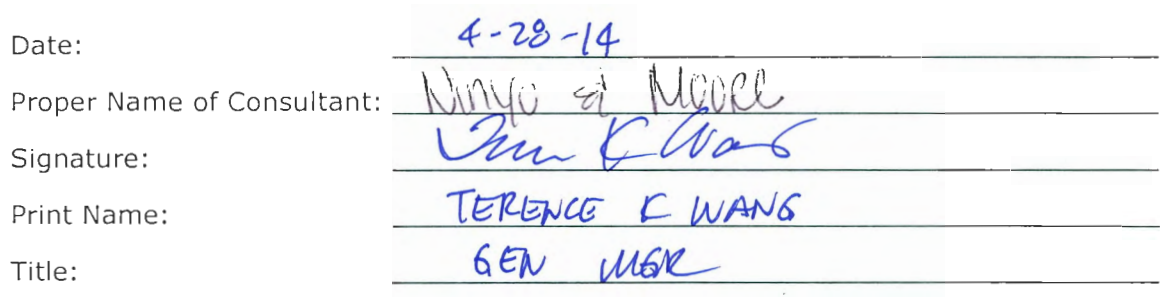 Date: 4-28-14
Proper Name of Consultant: Ninyo & Moore
Signature: Teren K Wang
Print Name: TERENCE K WANG
Title: GEN MGR